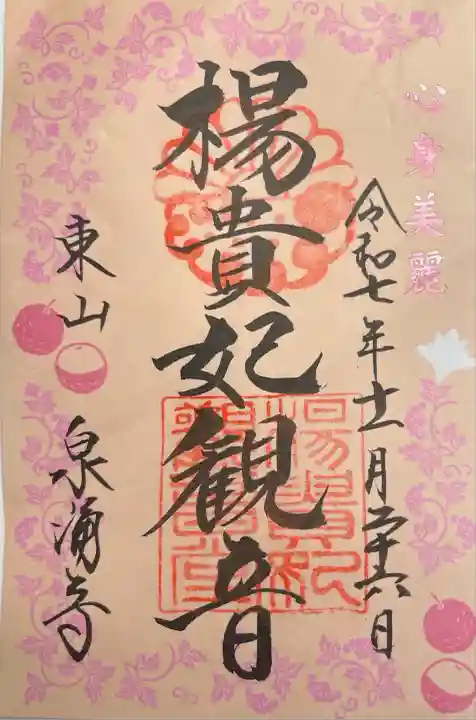 心身美麗
令和七年十一月二十六日
楊貴妃観音
東山 泉涌寺
楊貴妃
観音堂